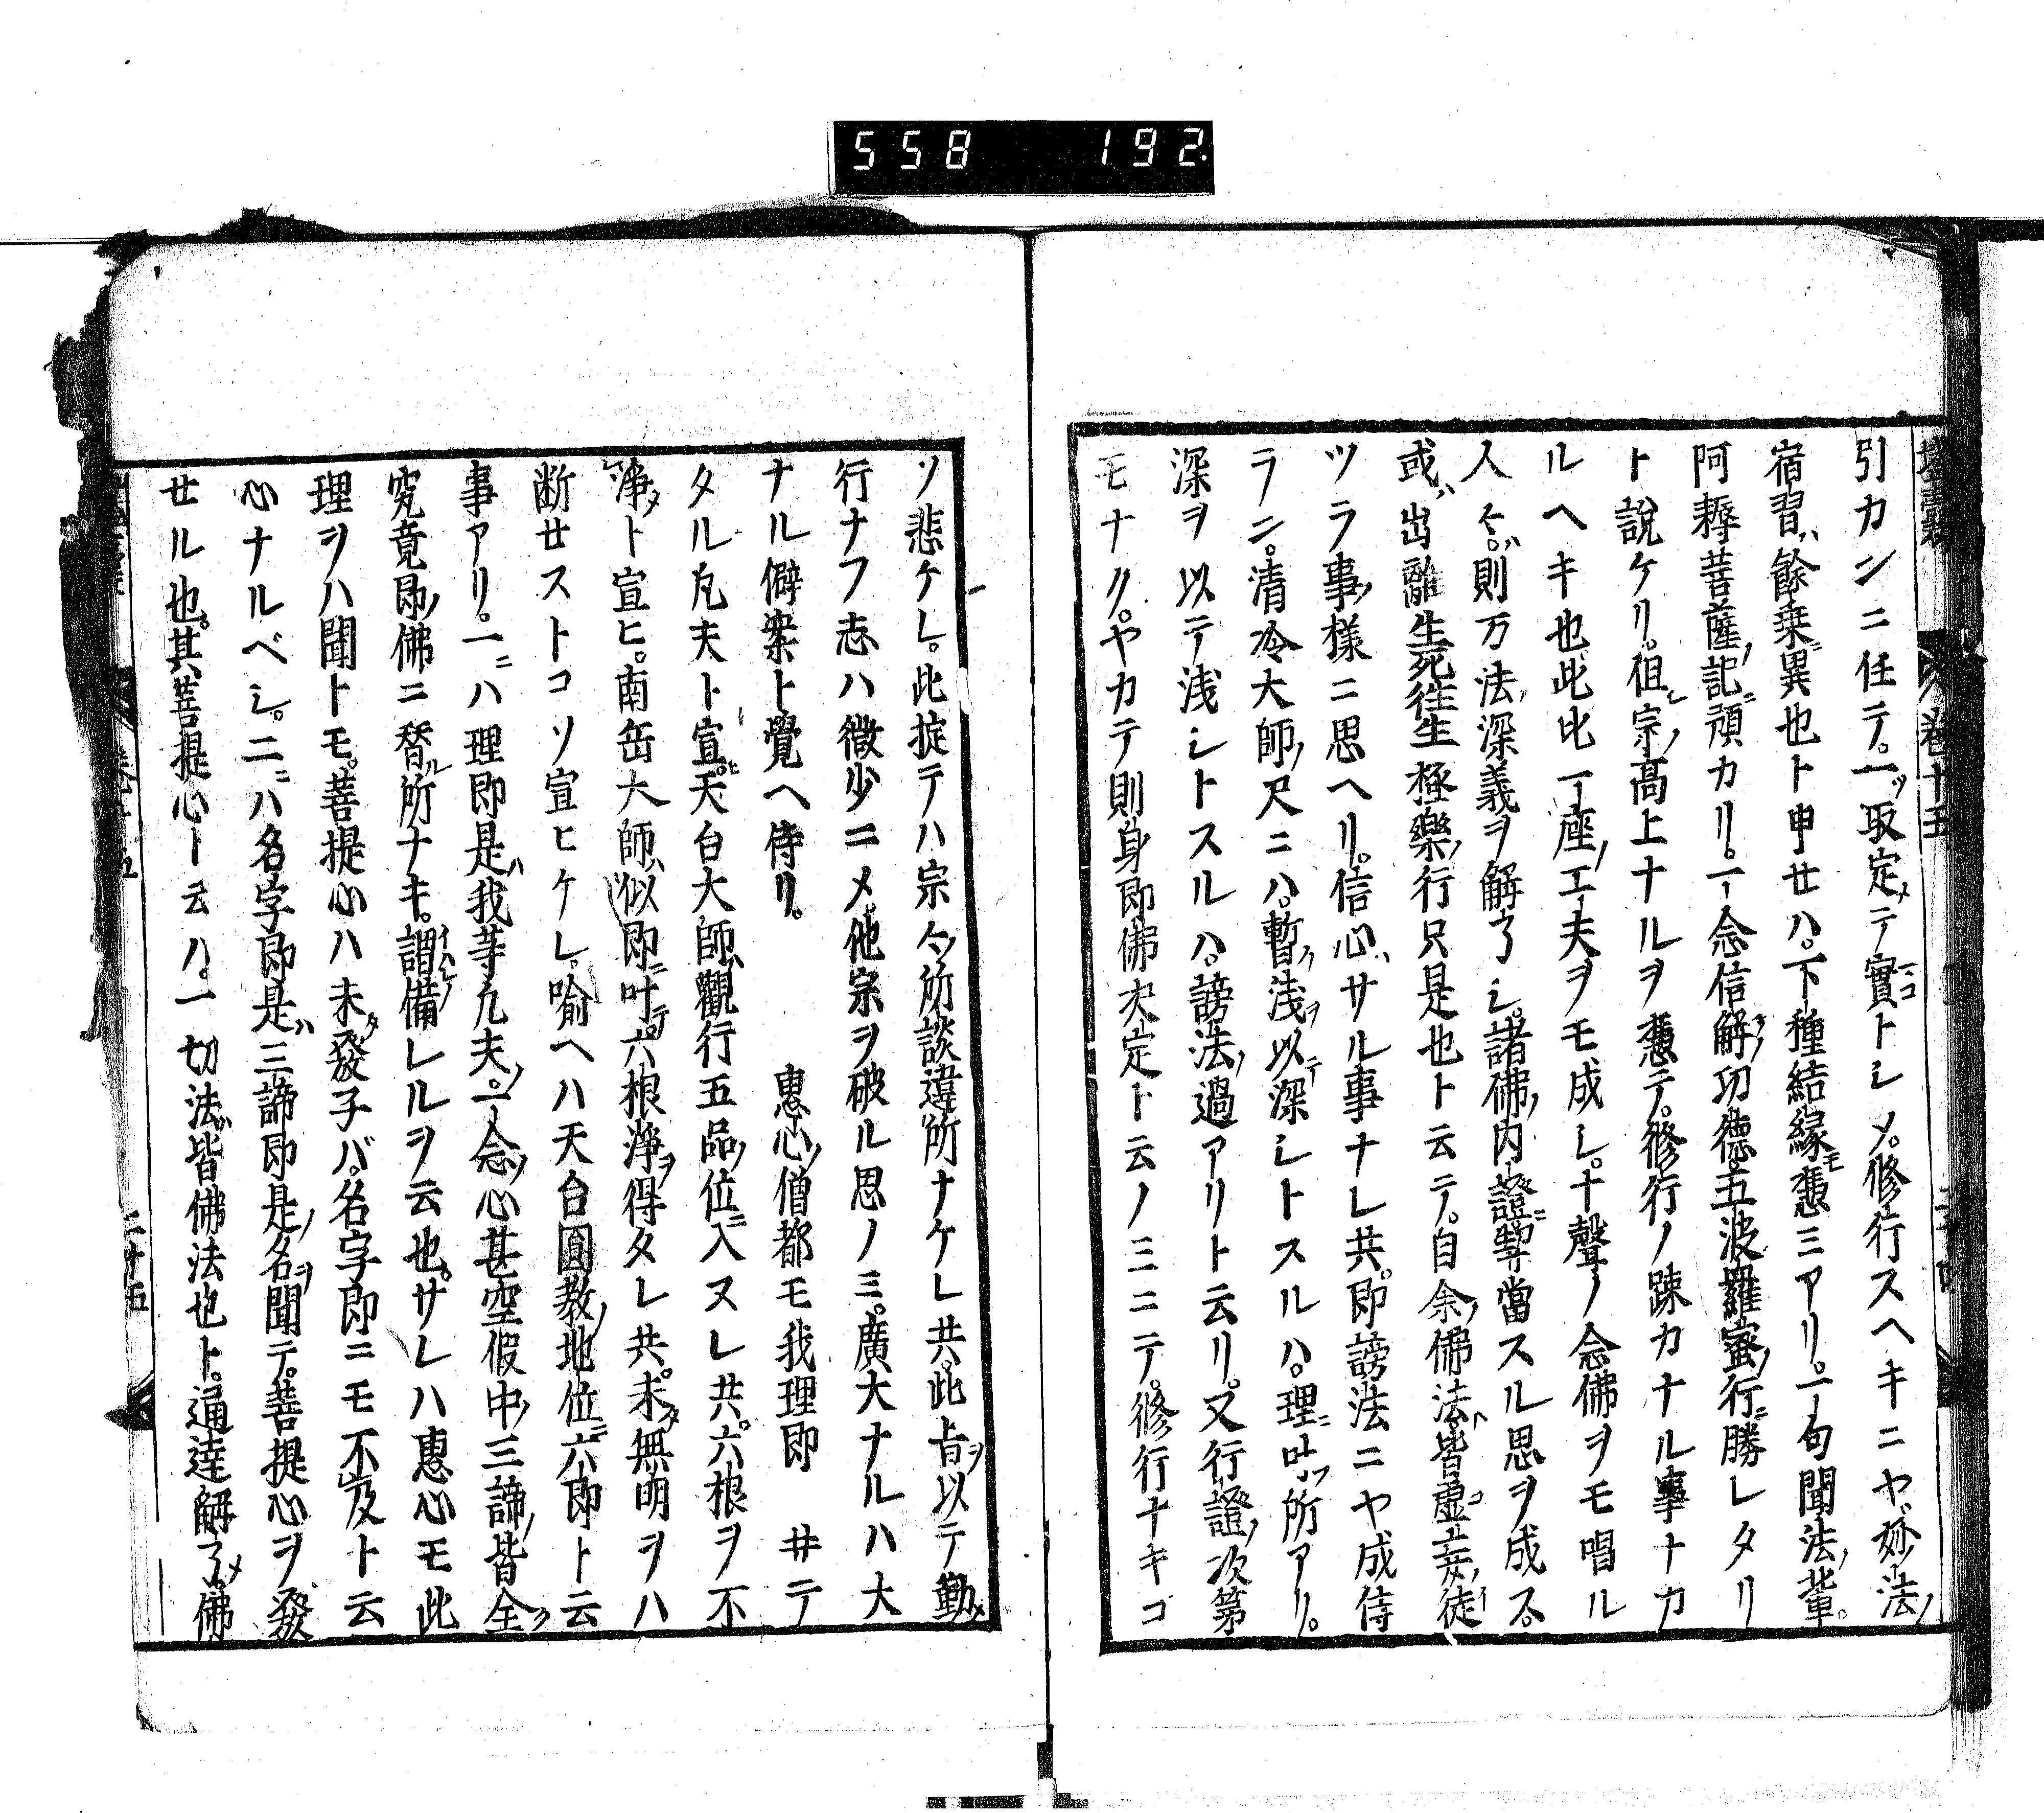 558 192
引カンニ任テ。一ッ取定メテ實ニコトシメ。修行スヘキニヤ。妙法ノ
宿習ハ餘乗ニ異也ト申セハ。下種結縁モ憑ミアリ。一句聞法ノ輩。
阿耨菩薩ノ記ニ預カリ。一念信解ノ功徳。五波羅蜜ノ行ニ勝レタリ
ト説ケリ。但シ宗ノ髙上ナルヲ憑テ。修行ノ踈カナル事ナカ
ルヘキ也。此比一座ノ工夫ヲモ成シ。十聲ノ念佛ヲモ唱ル
人々ハ。則万法ノ深義ヲ解了シ。諸佛ノ内證ニ挈當スル思ヲ成ス。
或ハ出離生死往生極樂ノ行只是也ト云テ。自余ノ佛法ハ皆虚妄ノ徒
ツラ事ノ様ニ思ヘリ。信心ハサル事ナレ共。即謗法ニヤ成侍
ラン。清冷大師ノ尺ニハ。暫ク浅ヲ以テ深シトスルハ。理ニ叶フ所アリ。
深ヲ以テ浅シトスルハ。謗法ノ過アリト云リ。又行證ノ次第
モナク。ヤカテ則身即佛决定ト云ノミニテ。修行ナキコ
ソ悲ケレ。此掟テハ宗々ノ所談違所ナケレ共。此旨ヲ以テ勤メ
行ナフ志ハ微少ニメ。他宗ヲ破ル思ノミ。廣大ナルハ大
ナル僻案ト覺ヘ侍リ。 惠心ノ僧都モ我理即ノ
タル凡夫ト宣ヒ。天台大師ハ觀行五品ノ位ニ入ヌレ共。六根ヲ不
浄メト宣ヒ。南岳大師ハ似即ニ叶テ。六根浄ヲ得タレ共。未タ無明ヲハ
断セストコソ宣ヒケレ。喩ヘハ天台圓教ノ地位ニ六即ト云
事アリ。一ニハ理即是ハ我等凢夫ノ。一念ノ心甚空假中ノ三諦ノ皆全ク
究竟即ノ佛ニ替ル所ナキ。謂備レルヲ云也。サレハ惠心モ此
理ヲハ聞トモ。菩提心ハ未タ發子バ。名字即ニモ不及ト云
心ナルベシ。二ニハ名字即是ハ三諦即是ノ名ヲ聞テ。菩提心ヲ發
せル也。其菩提心ト云ハ。一切法ハ皆佛法也ト。通達解了メ。佛